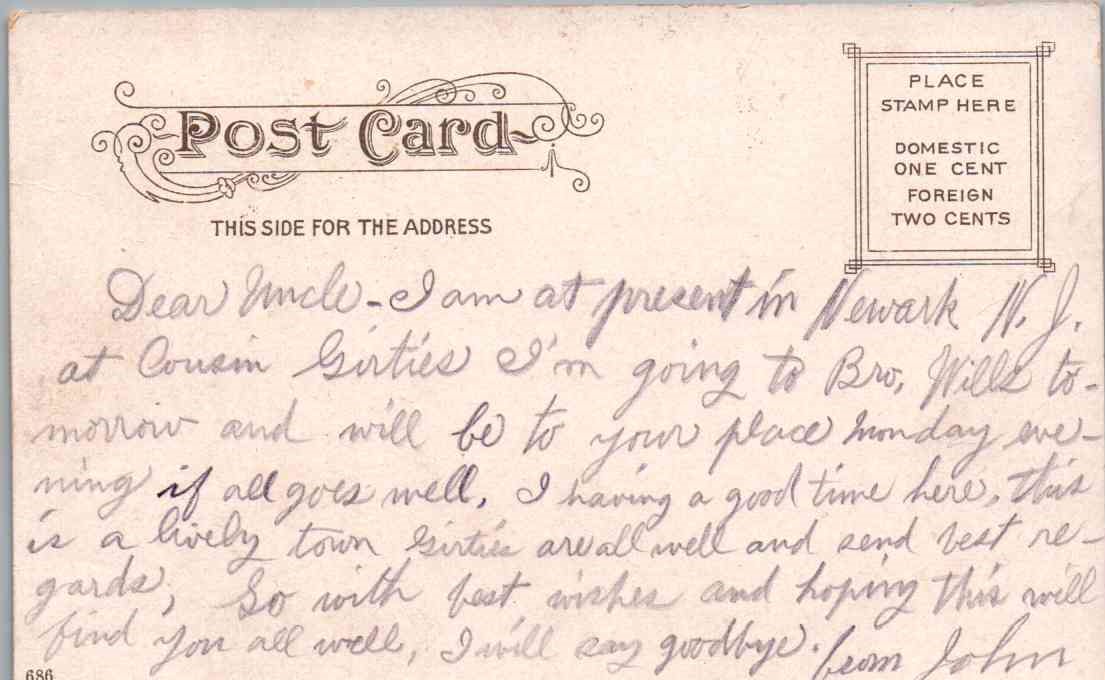 Post Card
THIS SIDE FOR THE ADDRESS
PLACE
STAMP HERE
DOMESTIC
ONE CENT
FOREIGN
TWO CENTS
Dear Uncle - I am at present in Newark N. J.
at Cousin Girties I'm going to Bro. Wills to-
morrow and will be to your place Monday eve-
ning if all goes well. I having a good time here, this
is a lively town Girties are all well and send best re-
gards, So with best wishes and hoping this will
find you all well, I will say goodbye. from John
686